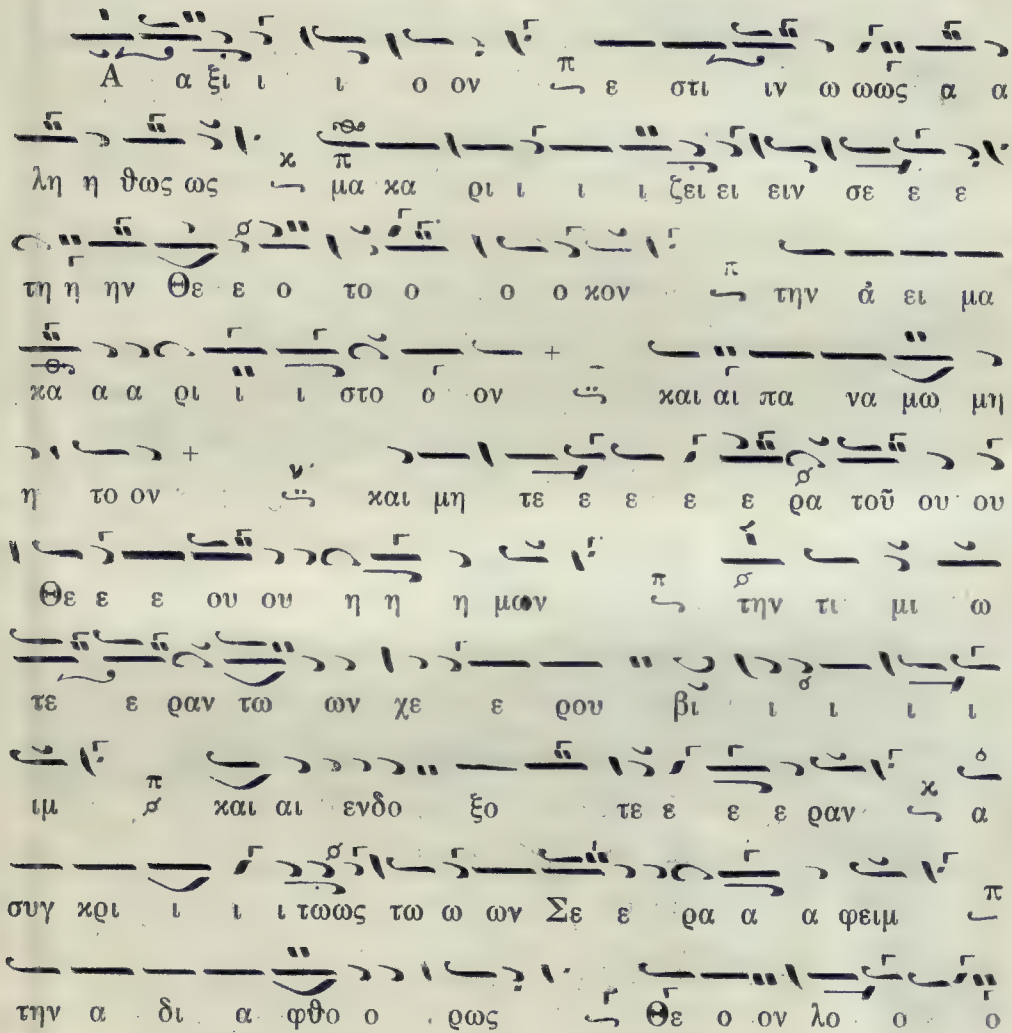 Α α ξι ι ι ο ον π ε στι ιν ω ωως α α
λη η θως ως κ π μα κα ρι ι ι ι ζει ει ειν σε ε ε
τη η ην Θε ε ο το ο ο ο κον π την ἀ ει μα
κα α α ρι ι ι στο ο ον και αι πα να μω μη
η το ον ν και μη τε ε ε ε ε ρα τοῦ ου ου
Θε ε ε ου ου η η η μων π την τι μι ω
τε ε ραν τω ων χε ε ρου βι ι ι ι ι
ιμ π και αι ενδο ξο τε ε ε ε ραν κ α
συγ κρι ι ι ι τωως τω ω ων Σε ε ρα α α φειμ π
την α δι α φθο ο ρως Θε ο ον λο ο ο